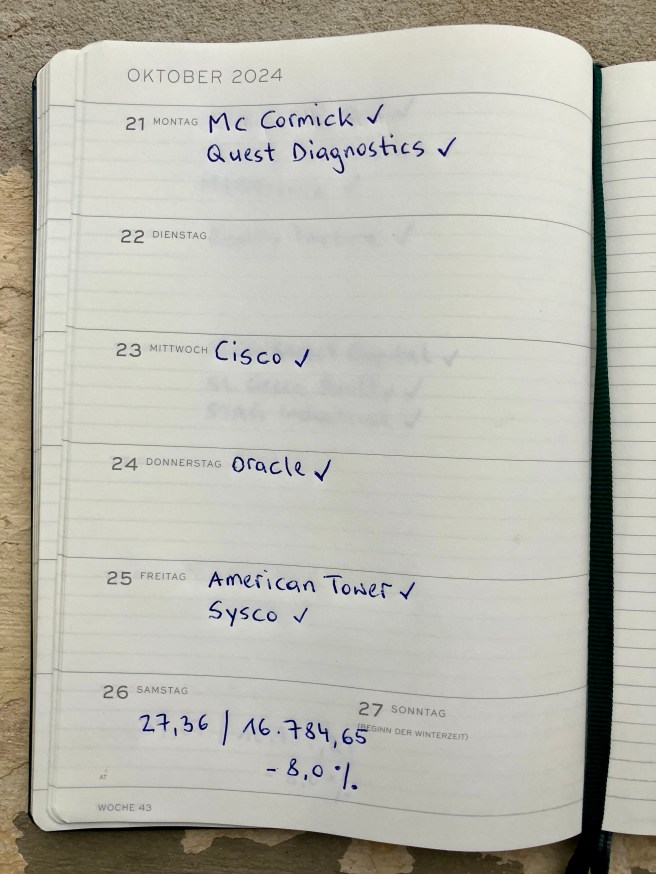 OKTOBER 2024
21 MONTAG Mc Cormick ✓
Quest Diagnostics ✓
22 DIENSTAG
23 MITTWOCH Cisco ✓
24 DONNERSTAG Oracle ✓
25 FREITAG American Tower ✓
Sysco ✓
26 SAMSTAG
27 SONNTAG
(BEGINN DER WINTERZEIT)
27,36 | 16.784,65
- 8,0 %
AT
WOCHE 43